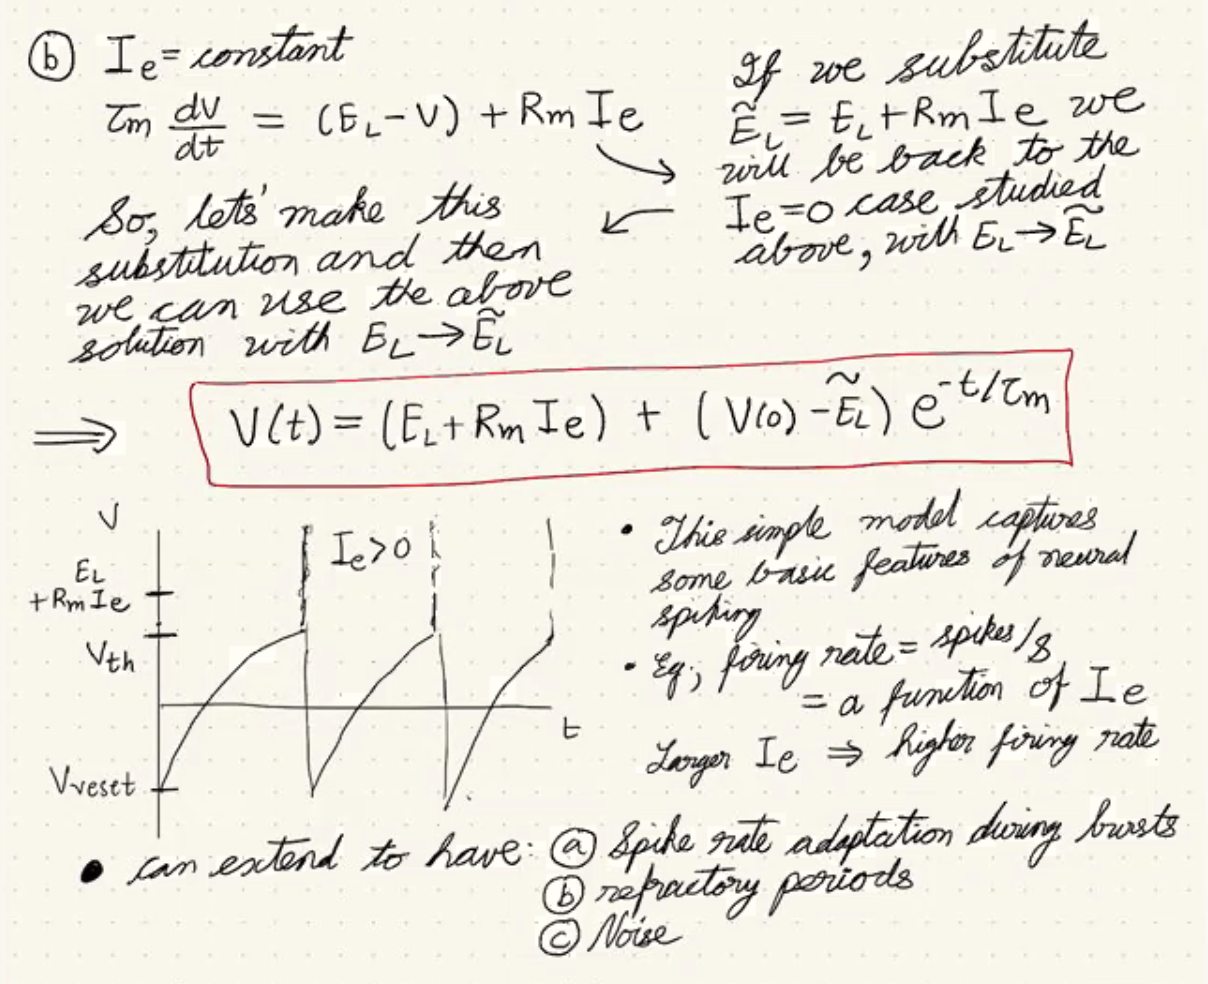 ⓑ Ie = constant
τm dV/dt = (EL - V) + Rm Ie
If we substitute
ẼL = EL + Rm Ie we
will be back to the
Ie = 0 case studied
above, with EL → ẼL
So, lets' make this
substitution and then
we can use the above
solution with EL → ẼL
⟹ V(t) = (EL + Rm Ie) + (V(0) - ẼL) e^{-t/τm}
V
Ie > 0
EL
+Rm Ie
Vth
t
Vreset
• This simple model captures
some basic features of neural
spiking
• Eg; firing rate = spikes/s
= a function of Ie
Larger Ie ⇒ higher firing rate
• can extend to have: ⓐ Spike rate adaptation during bursts
ⓑ refractory periods
ⓒ Noise